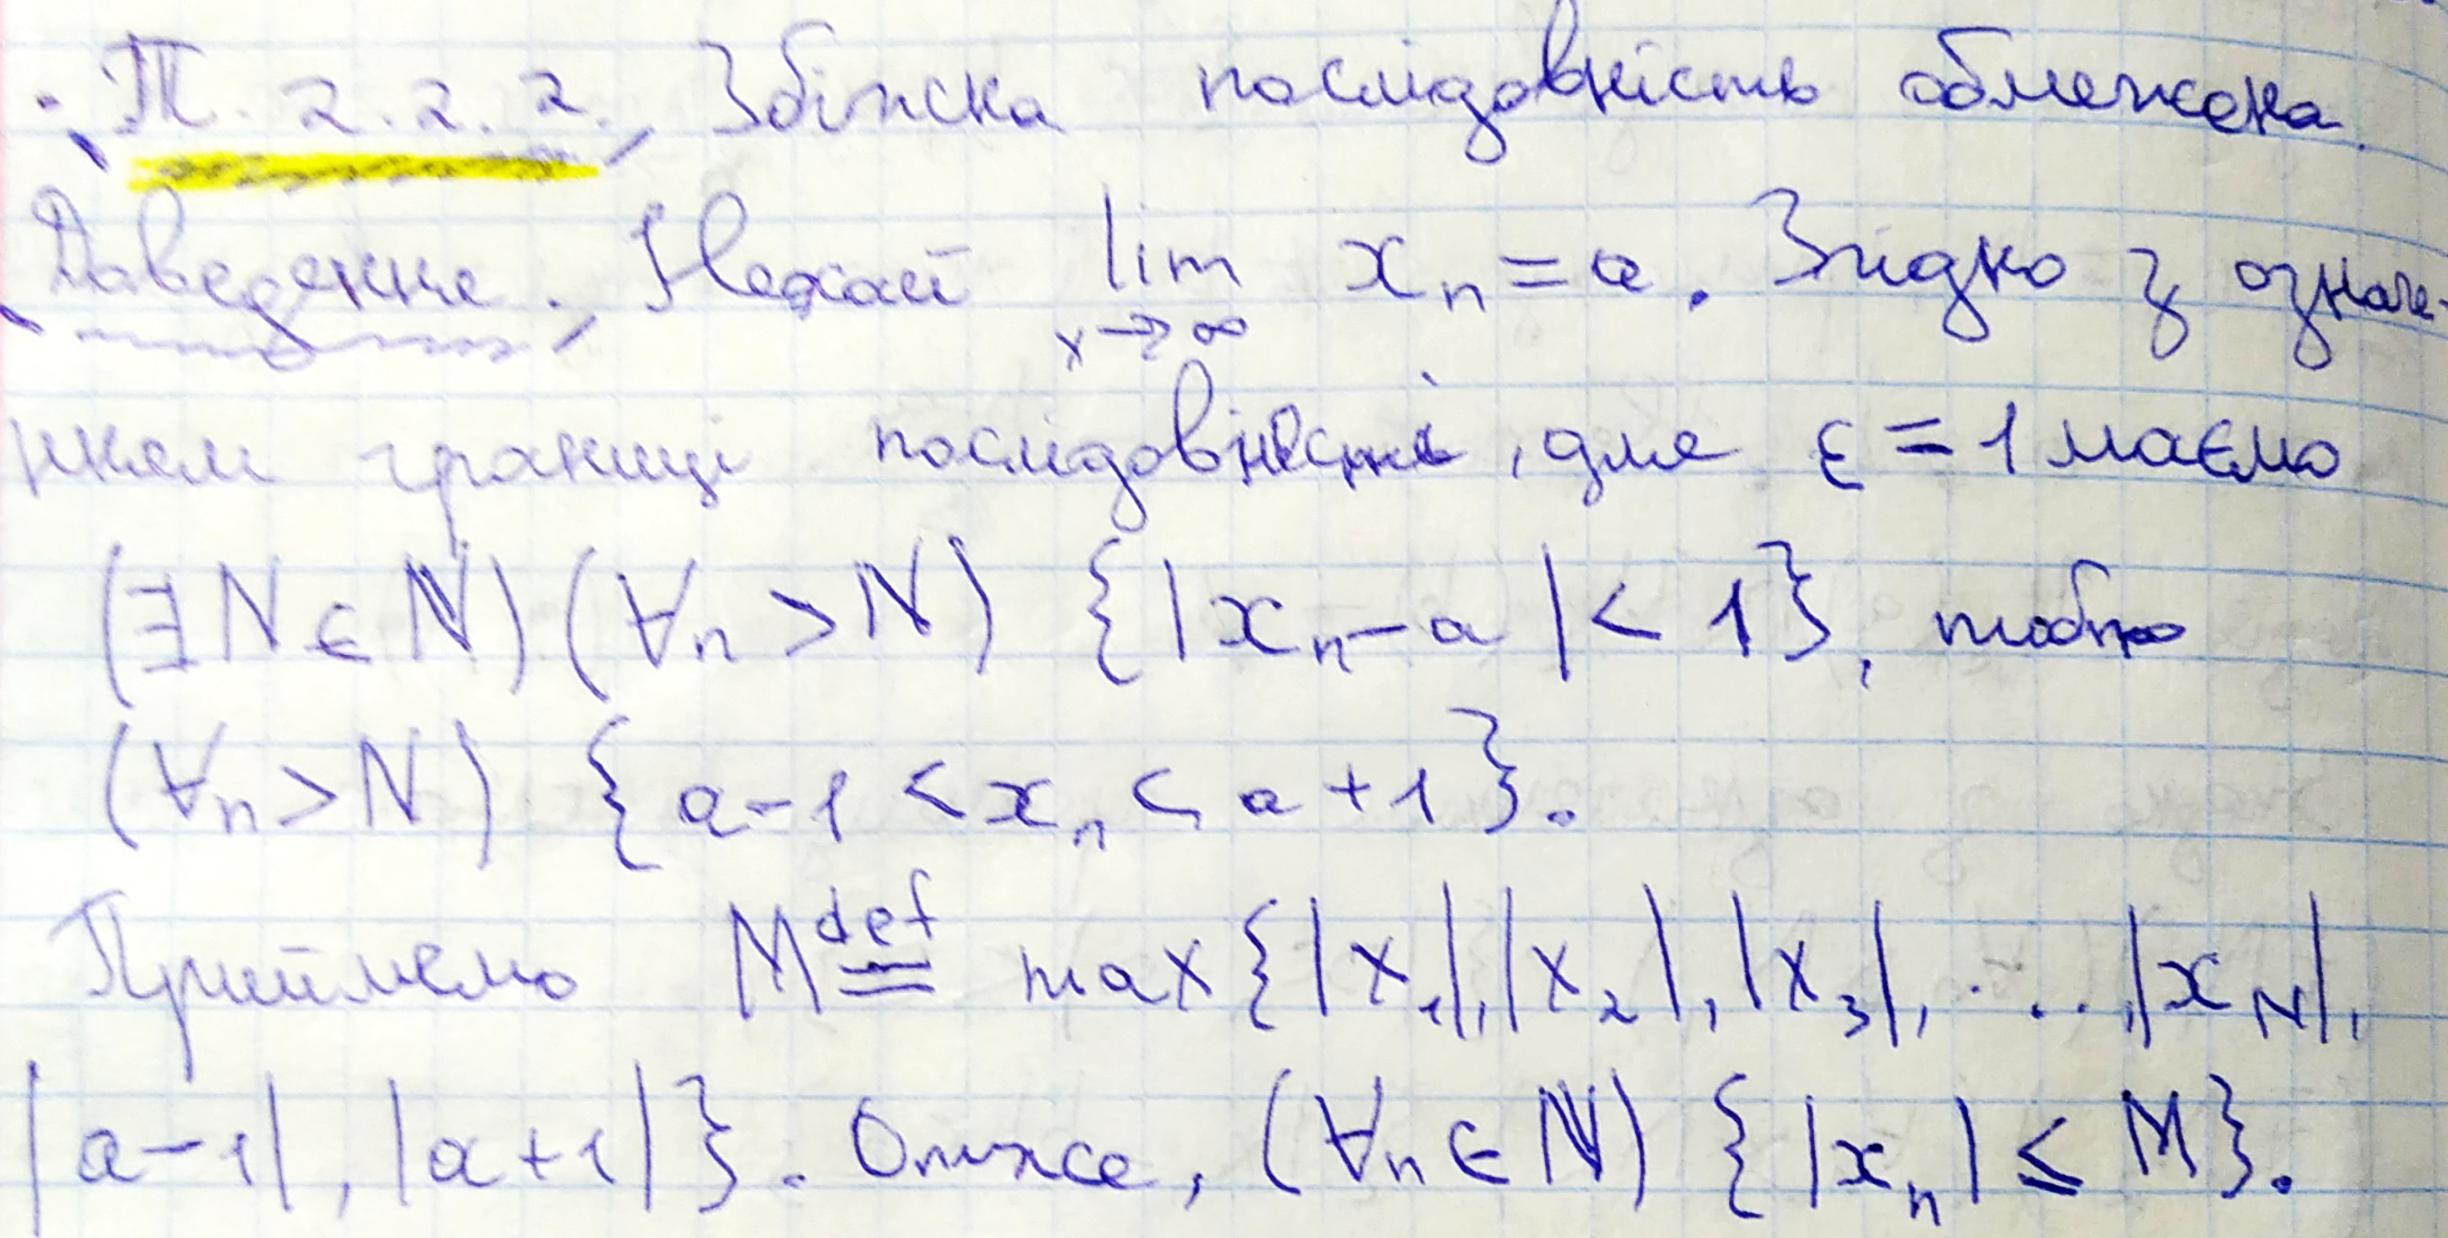 Т. 2.2.2. Збіжна послідовність обмежена.
Доведення. Нехай lim x_n = a. Згідно з означе-
x→∞
нням границі послідовності, для ε = 1 маємо
(∃N∈ℕ)(∀n>N) {|x_n - a|<1}, тобто
(∀n>N) {a-1<x_n<a+1}.
Приймемо M def= max{|x_1|,|x_2|,|x_3|,...,|x_N|,
|a-1|,|a+1|}. Отже, (∀n∈ℕ) {|x_n|≤M}.